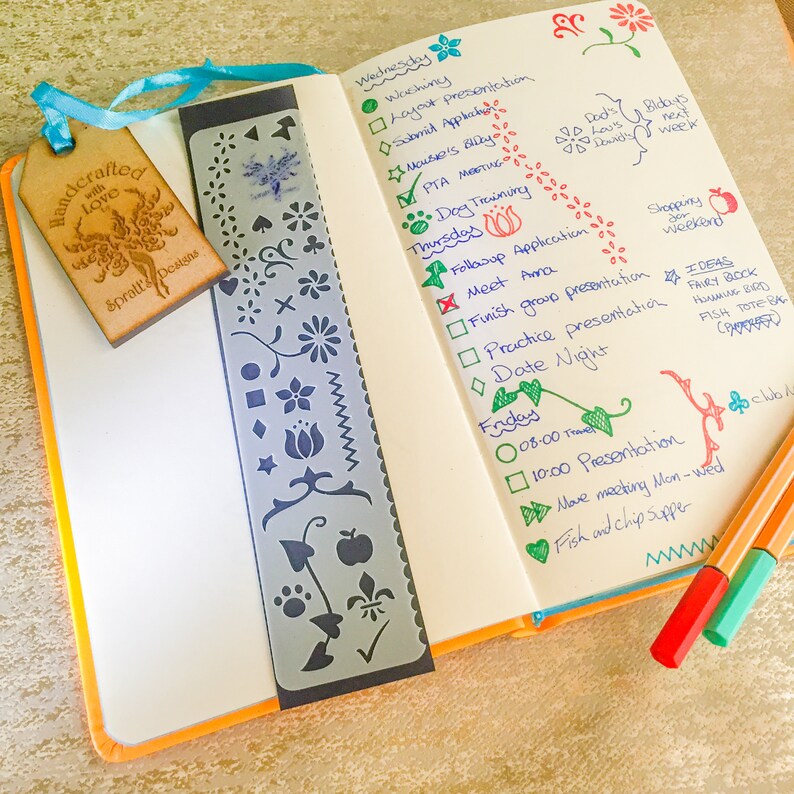 Handcrafted
with
Love
Spratt's Designs
Wednesday
Washing
Layout presentation
Submit Application
Mousie's BDay
PTA MEETING
Dog Training
Thursday
Followup Application
Meet Anna
Finish group presentation
Practice presentation
Date Night
Friday
08:00 Travel
10:00 Presentation
Move meeting Mon-Wed
Fish and chip Supper
Dad's
Lou's
David's
Bldays
next
week
Shopping
for
Weekend
IDEAS
FAIRY BLOCK
HUMMING BIRD
FISH TOTE-BAG
(PINTEREST)
club